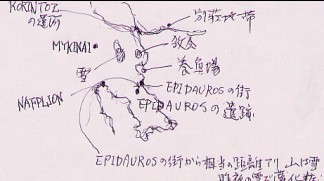 KORINTOZ
の遺跡
別荘地一帯
MYKINAI
教会
養魚場
雪
EPIDAUROSの街
NAFPLION
EPIDAUROSの遺蹟
EPIDAUROSの街から相当の距離アリ 山は雪